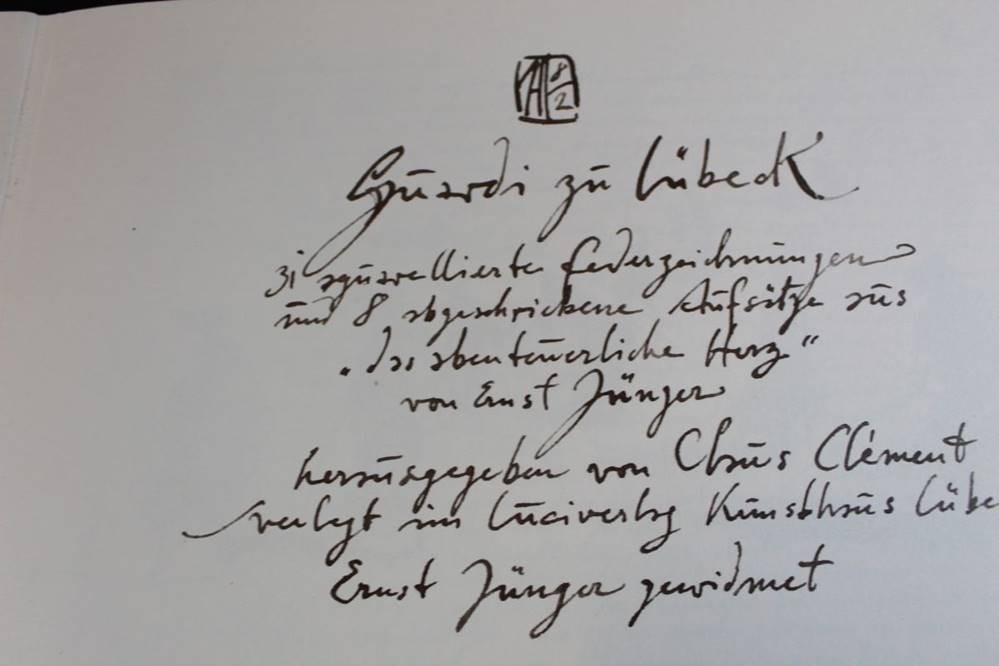 Guardi zu Lübeck
31 aquarellierte Federzeichnungen
und 8 abgeschriebene Aufsätze aus
„das abenteuerliche Herz“
von Ernst Jünger
herausgegeben von Claus Clément
verlegt im Luciverlag Kunsthaus Lübe
Ernst Jünger gewidmet